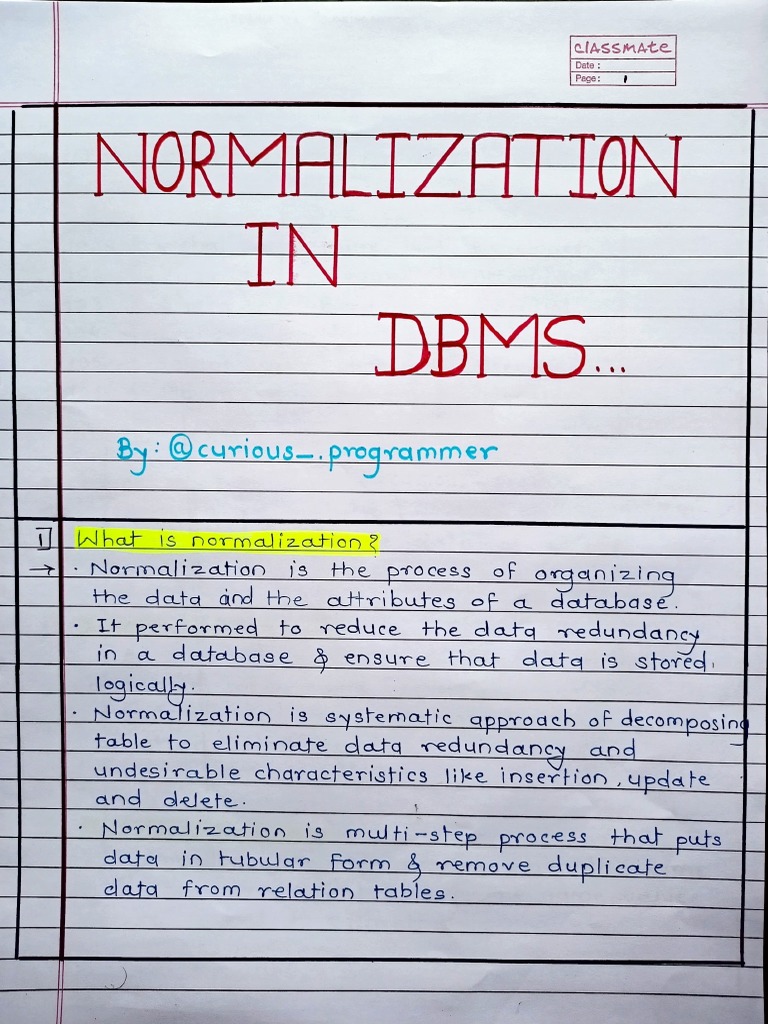 classmate
Date :
Page: 1
NORMALIZATION
IN
DBMS...
By: @curious_.programmer
1] What is normalization?
→ · Normalization is the process of organizing
the data and the attributes of a database.
· It performed to reduce the data redundancy
in a database & ensure that data is stored
logically.
· Normalization is systematic approach of decomposing
table to eliminate data redundancy and
undesirable characteristics like insertion, update
and delete.
· Normalization is multi-step process that puts
data in tubular form & remove duplicate
data from relation tables.